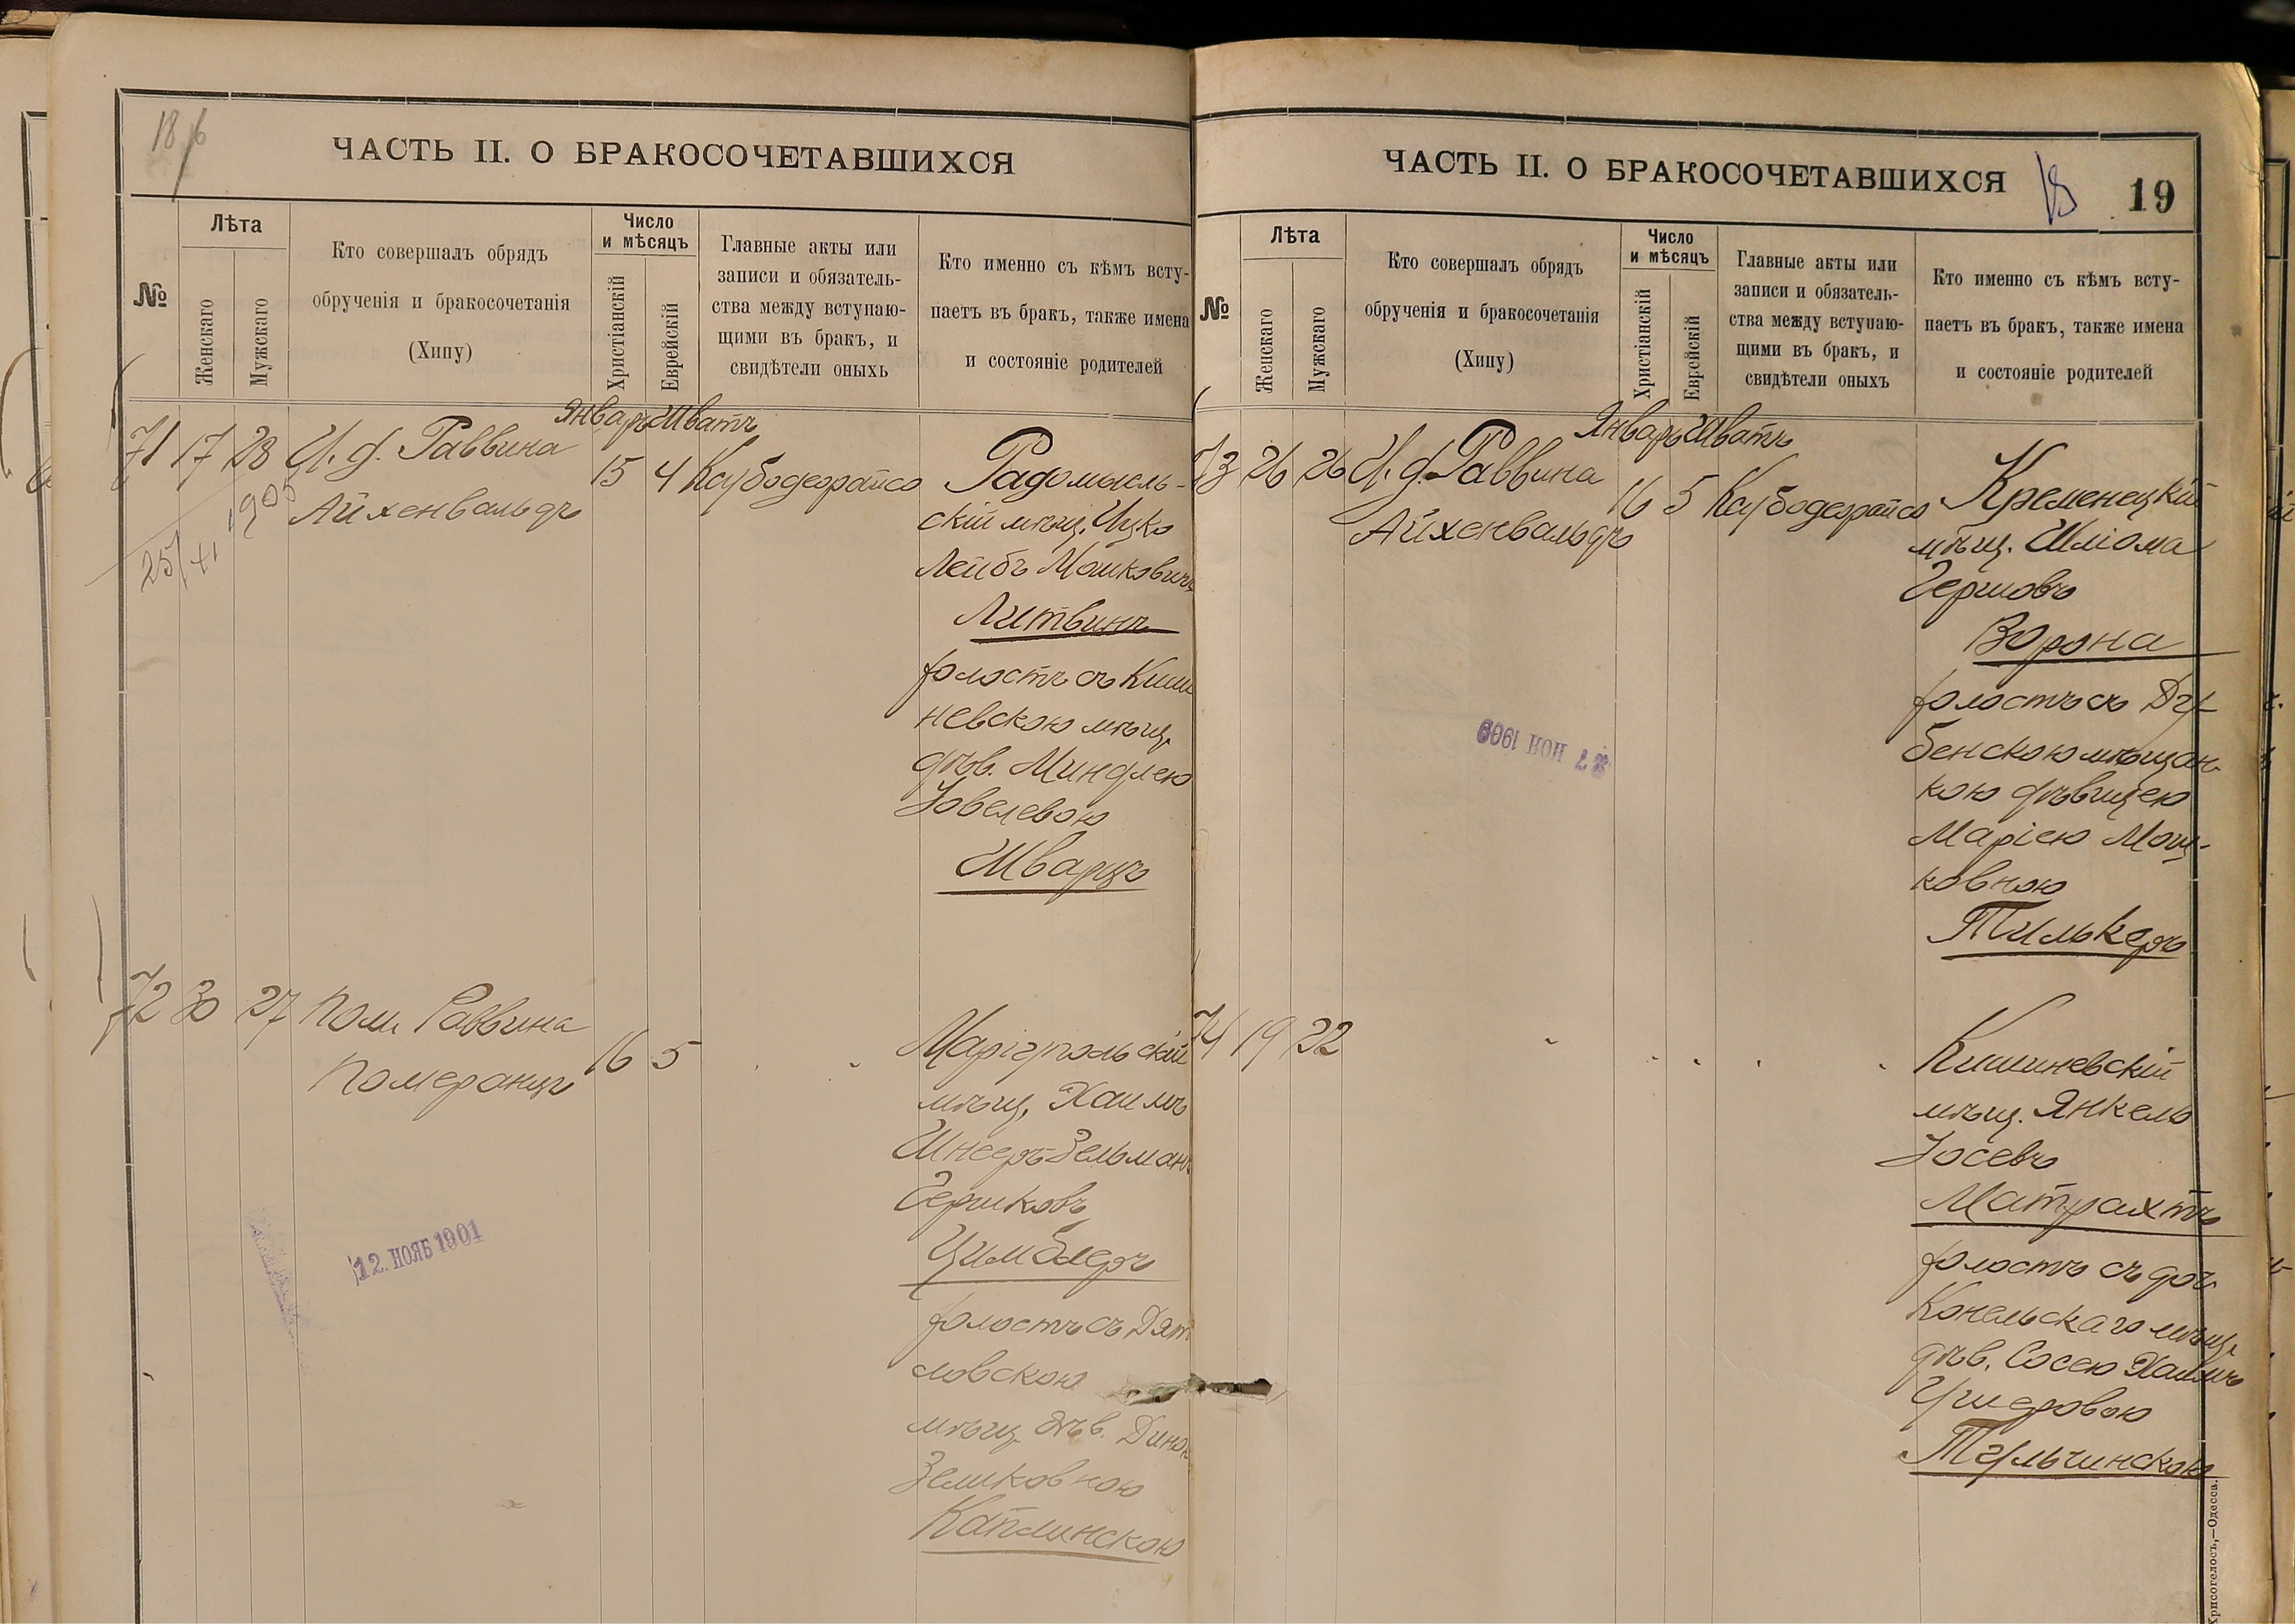 18/6
ЧАСТЬ II. О БРАКОСОЧЕТАВШИХСЯ
№
Лѣта
Женскаго
Мужскаго
Кто совершалъ обрядъ
обрученія и бракосочетанія
(Хипу)
Число
и мѣсяцъ
Христіанскій
Еврейскій
Главные акты или
записи и обязатель-
ства между вступаю-
щими въ бракъ, и
свидѣтели оныхъ
Кто именно съ кѣмъ всту-
паетъ въ бракъ, также имена
и состояніе родителей
Январь Шватъ
71 17 28 И. д. Раввина
Айхенвальдъ
15 4
Радомысль-
скій мѣщ. Ицко
Лейбъ Мошковичъ
Литвинъ
холостъ съ Киши
невскою мѣщ.
дѣв. Миндлею
Іовелевою
Шварцъ
25/XI 1905
72 30 27 Пом. Раввина
Померанцъ
16 5
Маріупольскій
мѣщ. Хаимъ
Шнееръ-Зельманъ
Гершковъ
Цимблеръ
холостъ съ Дят
ловскою
мѣщ. дѣв. Диною
Зеликовною
Каплинскою
12. НОЯБ 1901
ЧАСТЬ II. О БРАКОСОЧЕТАВШИХСЯ
18 19
№
Лѣта
Женскаго
Мужскаго
Кто совершалъ обрядъ
обрученія и бракосочетанія
(Хипу)
Число
и мѣсяцъ
Христіанскій
Еврейскій
Главные акты или
записи и обязатель-
ства между вступаю-
щими въ бракъ, и
свидѣтели оныхъ
Кто именно съ кѣмъ всту-
паетъ въ бракъ, также имена
и состояніе родителей
Январь Шватъ
73 26 26 И. д. Раввина
Айхенвальдъ
16 5
Кременецкій
мѣщ. Шліома
Гершовъ
Ворона
холостъ съ Ду-
бенскою мѣщан-
кою дѣвицею
Маріею Мош-
ковною
Тилькеръ
27 1909
74 19 22
Кишиневскій
мѣщ. Янкель
Іосевъ
Матрахтъ
холостъ съ доч.
Конельскаго мѣщ.
дѣв. Сосею Хаимъ
Ушеровою
Тульчинскою
Хрисогелосъ,—Одесса.